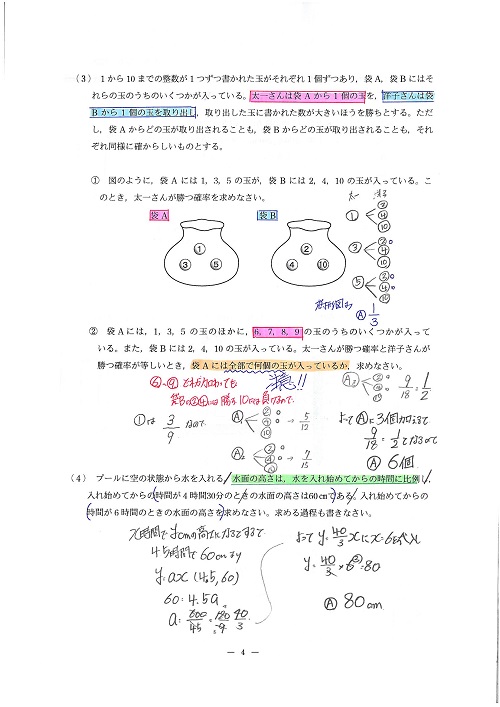 (3) 1から10までの整数が1つずつ書かれた玉がそれぞれ1個ずつあり，袋A，袋Bにはそ
れらの玉のうちのいくつかが入っている。太一さんは袋Aから1個の玉を，洋子さんは袋
Bから1個の玉を取り出し，取り出した玉に書かれた数が大きいほうを勝ちとする。ただ
し，袋Aからどの玉が取り出されることも，袋Bからどの玉が取り出されることも，それ
ぞれ同様に確からしいものとする。
① 図のように，袋Aには1，3，5の玉が，袋Bには2，4，10の玉が入っている。こ
のとき，太一さんが勝つ確率を求めなさい。
袋A 袋B
① ③ ⑤
② ④ ⑩
① ② ④ ⑩
③ ② ④ ⑩
⑤ ② ④ ⑩
Ⓐ 1/3
② 袋Aには，1，3，5の玉のほかに，6，7，8，9の玉のうちのいくつかが入って
いる。また，袋Bには2，4，10の玉が入っている。太一さんが勝つ確率と洋子さんが
勝つ確率が等しいとき，袋Aには全部で何個の玉が入っているか，求めなさい。
⑥〜⑨ どれが加わっても
袋Bの②④には勝ち10には負けるので
①では 3/9 なので
→ 5/12
→ 7/15
9/18 = 1/2
よってAに3個加えて
9/18 = 1/2 となるので
Ⓐ 6個
(4) プールに空の状態から水を入れる。水面の高さは，水を入れ始めてからの時間に比例し，
入れ始めてからの時間が4時間30分のときの水面の高さは60cmである。入れ始めてからの
時間が6時間のときの水面の高さを求めなさい。求める過程も書きなさい。
x時間でycmの高さになるとすると
4.5時間で60cmより
y=ax (4.5, 60)
60=4.5a
a=600/45=120/9=40/3
よって y=40/3 x に x=6を代入
y=40/3×6=80
Ⓐ 80cm
— 4 —